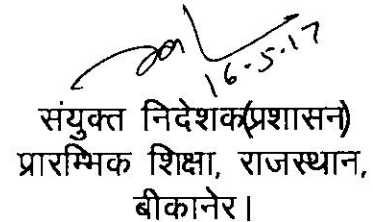 16-5-17
संयुक्त निदेशक(प्रशासन)
प्रारम्भिक शिक्षा, राजस्थान,
बीकानेर।